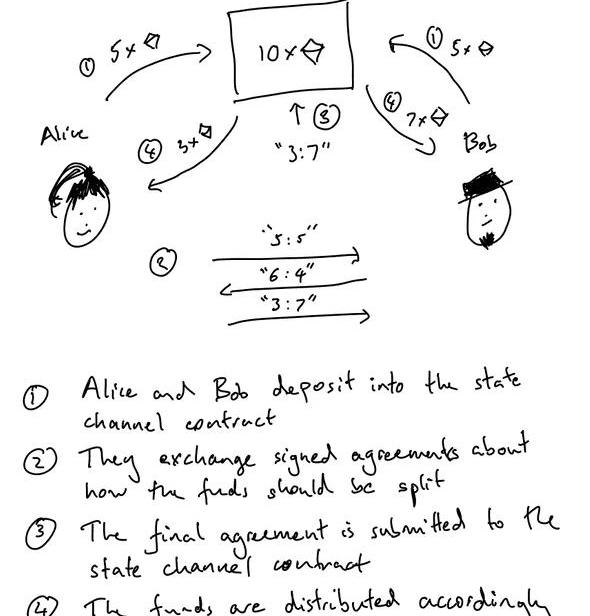 ① 5x
10x
① 5x
Alice
④ 3x
↑ ③
"3:7"
④ 7x
Bob
② "5:5"
"6:4"
"3:7"
① Alice and Bob deposit into the state
channel contract
② They exchange signed agreements about
how the funds should be split
③ The final agreement is submitted to the
state channel contract
④ The funds are distributed accordingly